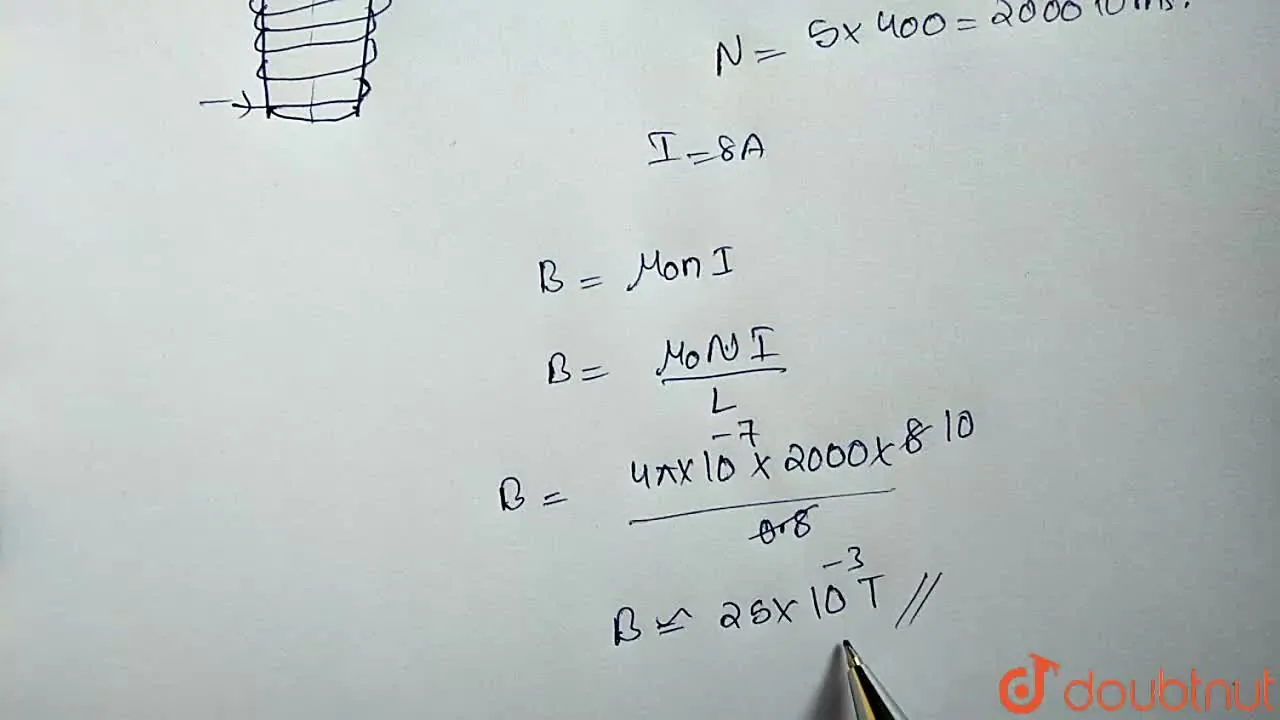 N = 5 × 400 = 2000
I = 8A
B = μ₀nI
B = μ₀NI
L
B = 4π×10⁻⁷ × 2000 × 8 10
0.8
B ≃ 25 × 10⁻³ T //
doubtnut